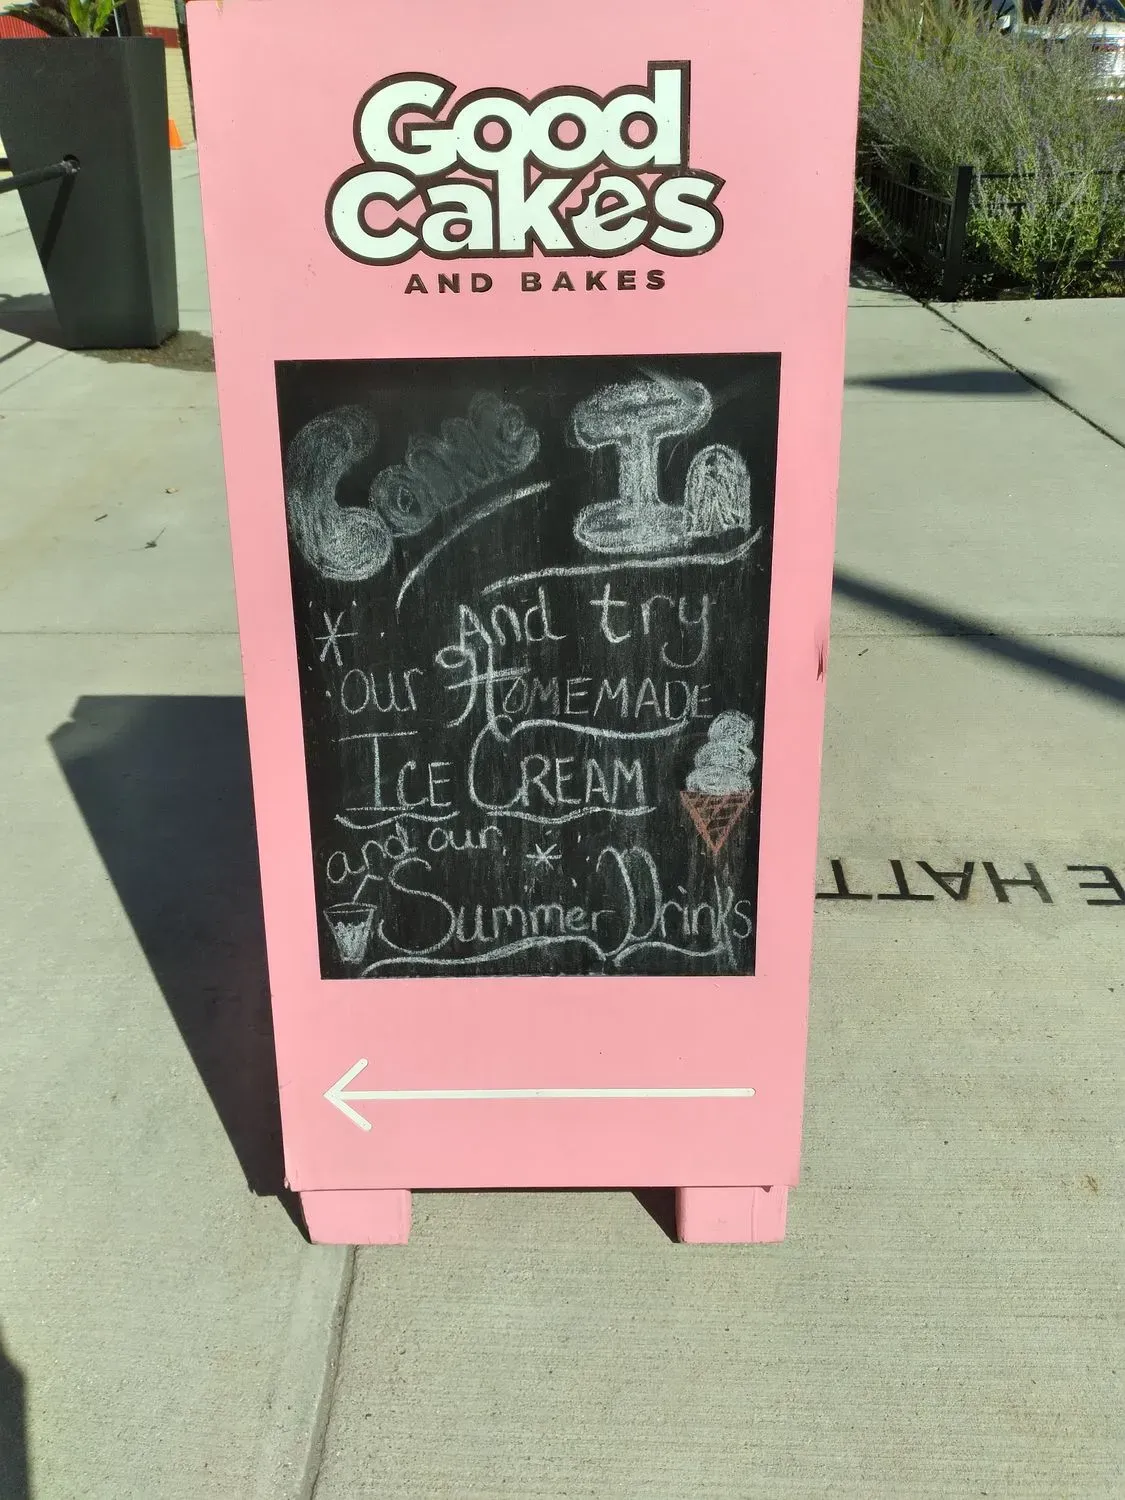 Good
Cakes
AND BAKES
Come In
And try
our HOMEMADE
ICE CREAM
and our
Summer Drinks
E HATT